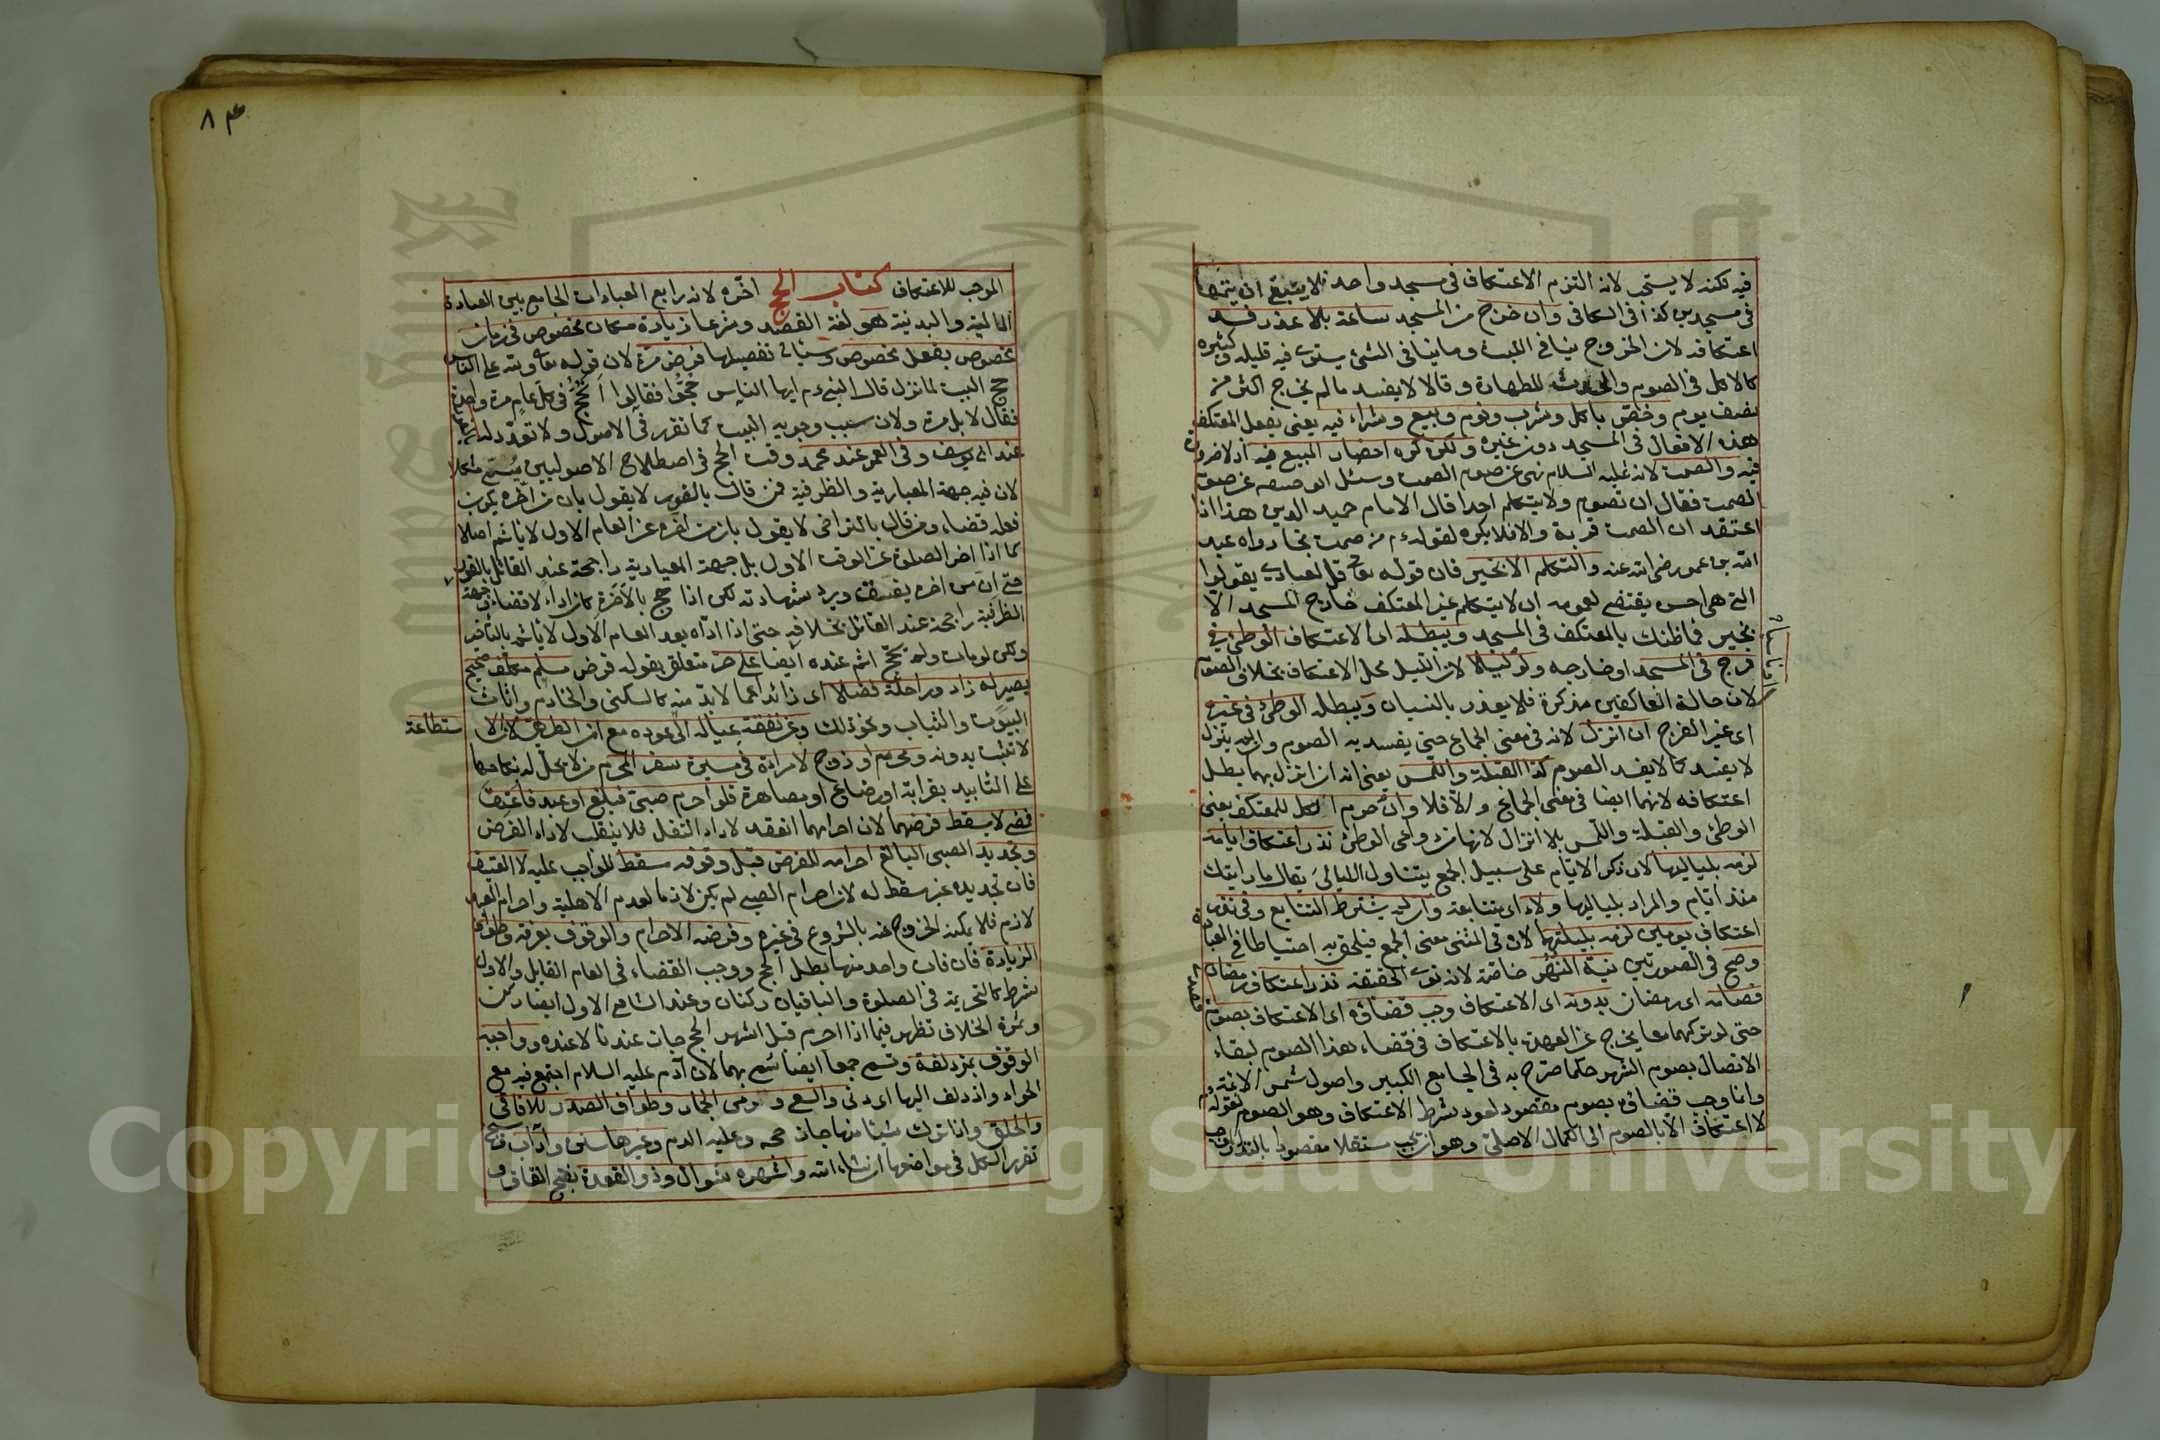 فيه لكنه لا يستحب لانه التزم الاعتكاف في مسجد واحد فلا ينبغي ان يتمها
في مسجدين كذا في الكافي وان خرج من المسجد ساعة بلا عذر فسد
اعتكافه لان الخروج ينافي اللبث وما ينافي الشئ يستوي فيه قليله وكثيره
كالاكل في الصوم والحدث للطهارة وقالا لا يفسد ما لم يخرج اكثر من
نصف يوم وخص باكل وشرب ونوم وبيع وشراء فيه يعني يفعل المعتكف
هذه الافعال في المسجد دون غيره ولكن كره احضار المبيع فيه اذ لا ضرورة
فيه والصمت لانه عليه السلام نهى عن صوم الصمت وسئل ابو حنيفة عن صوم
الصمت فقال ان تصوم ولا يتكلم احدا قال الامام حميد الدين هذا اذا
اعتقد ان الصمت قربة والا فلا يكره لقوله عم من صمت نجا رواه عبد
الله بن عمر رضي الله عنه والتكلم الا بخير فان قوله تعالى قل لعبادي يقولوا
التي هي احسن يقتضي بعمومه ان لا يتكلم غير المعتكف خارج المسجد الا
بخير فما ظنك بالمعتكف في المسجد ويبطله اى الاعتكاف الوطئ في
فرج في المسجد او خارجه ولو ليلا لان الليل محل الاعتكاف بخلاف الصوم
لان حالة العاكفين مذكرة فلا يعذر بالنسيان ويبطله الوطئ في غيره
اى غير الفرج ان انزل لانه في معنى الجماع حتى يفسد به الصوم وان لم ينزل
لا يفسد كما لا يفسد الصوم كذا القبلة واللمس يعني انه ان انزل بهما بطل
اعتكافه لانهما ايضا في معنى الجماع والا فلا وان حرم الكل للمعتكف يعني
الوطئ والقبلة واللمس بلا انزال لانها من دواعي الوطئ نذر اعتكاف ايام
لزمه بلياليها لان ذكر الايام على سبيل الجمع يتناول الليالي يقال ما رايتك
منذ ايام والمراد بلياليها ولاء اى متتابعة وان لم يشترط التتابع وفي نذر
اعتكاف يومين لزمه بليلتيهما لان في المثنى معنى الجمع فيلحق به احتياطا في العبادة
وصح في الصورتين نية النهر خاصة لانه نوى الحقيقة نذر اعتكاف رمضان
فصامه اى رمضان بدونه اى الاعتكاف وجب قضاؤه اى الاعتكاف بصوم قصدى
حتى لو تركهما معا يخرج عن العهدة بالاعتكاف في قضاء هذا الصوم لبقاء
الاتصال بصوم الشهر حكما صرح به في الجامع الكبير واصول شمس الائمة
وانما وجب قضاؤه بصوم مقصود لعود شرط الاعتكاف وهو الصوم لقوله عم
لا اعتكاف الا بالصوم الى الكمال الاصلي وهو ان يجب مستقلا مقصودا بالنذر
٨٤
الموجب للاعتكاف كتاب الحج اخره لانه رابع العبادات الجامع بين العبادة
المالية والبدنية هو لغة القصد وشرعا زيارة مكان مخصوص في زمان
مخصوص بفعل مخصوص وسياتي تفصيلها فرض مرة لان قوله تعالى ولله على الناس
حج البيت لما نزل قال النبي عم ايها الناس حجوا فقالوا انحج في كل عام مرة واحدة
فقال لا بل مرة ولان سبب وجوبه البيت كما تقرر في الاصول ولا تعدد له
عند ابي يوسف وفي العمر عند محمد وقت الحج في اصطلاح الاصوليين يسمى مشكلا
لان فيه جهة المعيارية والظرفية فمن قال بالفور لا يقول بان من اخره يكون
فعله قضاء ومن قال بالتراخي لا يقول بان من اخره عن العام الاول لا ياثم اصلا
كما اذا اخر الصلوة عن الوقت الاول بل جهة المعيارية راجحة عند القائل بالفور
حتى ان من اخره يفسق ويرد شهادته لكن اذا حج بالاخرة كان اداء لا قضاء وجهة
الظرفية راجحة عند القائل بخلافه حتى اذا اداه بعد العام الاول لا ياثم بالتاخير
ولكن لو مات ولم يحج اثم عنده ايضا على حر متعلق بقوله فرض مسلم مكلف صحيح
بصير له زاد وراحلة فضلا اى زائدا عما لا بد منه كالسكنى والخادم واثاث
البيوت والثياب ونحو ذلك وعن نفقة عياله الى عوده مع امن الطريق لان الا
ستطاعة
لا تثبت بدونه ومحرم او زوج لامراة في مسيرة سفر المحرم من لا يحل له نكاحها
على التابيد بقرابة او رضاع او مصاهرة فلو احرم صبي فبلغ او عبد فاعتق
فمضى لا يسقط فرضهما لان احرامهما انعقد لاداء النفل فلا ينقلب لاداء الفرض
وتجديد الصبي البالغ احرامه للفرض قبل وقوفه مسقط للواجب عليه لا العتيق
فان تجديده غير مسقط له لان احرام الصبي لم يكن لازما لعدم الاهلية واحرام العبد
لازم فلا يمكنه الخروج عنه بالشروع في غيره وفرضه الاحرام والوقوف بعرفة وطواف
الزيارة فان فات واحد منها بطل الحج ووجب القضاء في العام القابل والاول
شرط كالتحريمة في الصلوة والباقيان ركنان وعند الشافعي الاول ايضا ركن
وثمرة الخلاف تظهر فيما اذا احرم قبل اشهر الحج جاز عندنا لا عنده وواجبه
الوقوف بمزدلفة وتسمى جمعا ايضا سمى بهما لان آدم عليه السلام اجتمع فيه مع
الحواء وازدلف اليها اى دنى والسعي ورمي الجمار وطواف الصدر للآفاقي
والحلق وان ترك شيئا منها جاز حجه وعليه الدم وغيرها سنن وآداب
تقرر الكل في مواضعها ان شاء الله واشهره شوال وذو القعدة بفتح القاف و